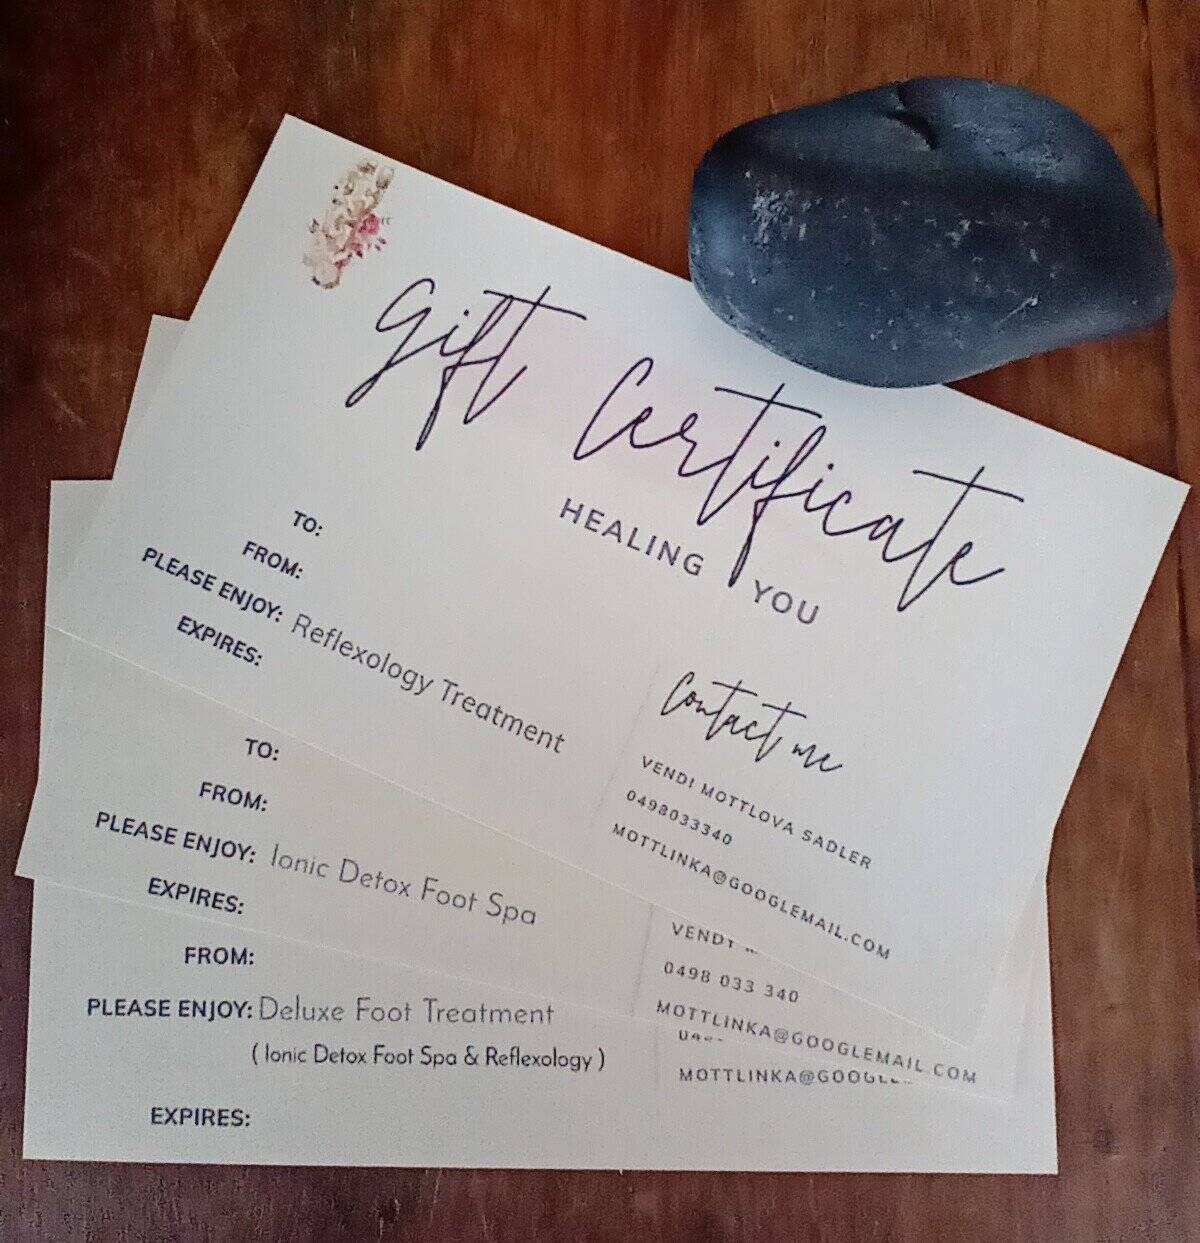 Gift Certificate
HEALING YOU
TO:
FROM:
PLEASE ENJOY: Reflexology Treatment
EXPIRES:
Contact me
VENDI MOTTLOVA SADLER
0498033340
MOTTLINKA@GOOGLEMAIL.COM
TO:
FROM:
PLEASE ENJOY: Ionic Detox Foot Spa
EXPIRES:
0498 033 340
MOTTLINKA@GOOGLEMAIL.COM
FROM:
PLEASE ENJOY: Deluxe Foot Treatment
( Ionic Detox Foot Spa & Reflexology )
EXPIRES: